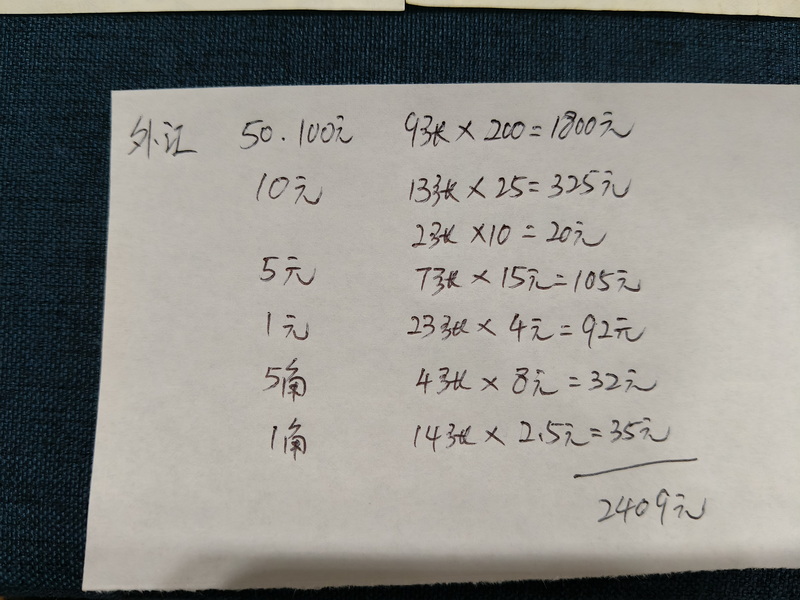 外汇 50.100元 9张×200=1800元
10元 13张×25=325元
2张×10=20元
5元 7张×15元=105元
1元 23张×4元=92元
5角 4张×8元=32元
1角 14张×2.5元=35元
2409元